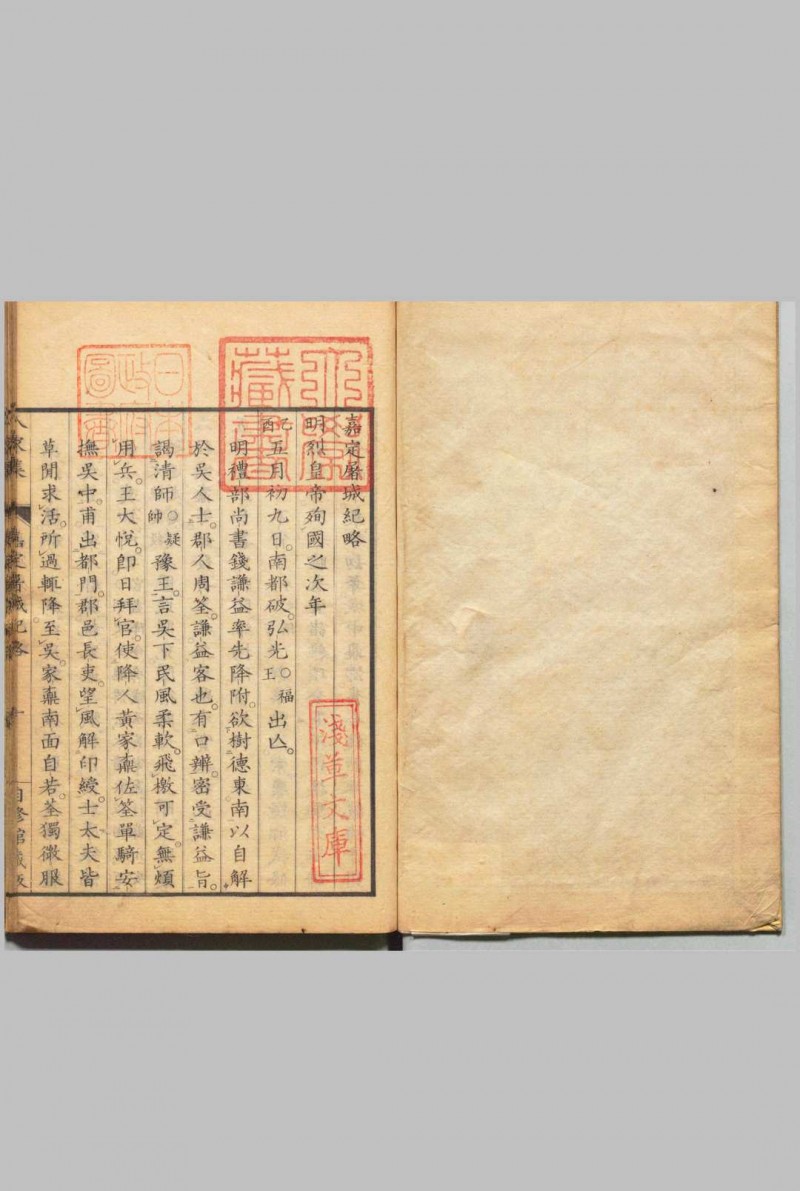 嘉定屠城紀略
明烈皇帝殉國之次年
乙酉五月初九日。南都破。弘光○福王出亾。
明禮部尚書錢謙益率先降附。欲樹德東南以自解
於吳人士。郡人周荃。謙益客也。有口辨。密受謙益旨。
謁清師○疑帥豫王。言吳下民風柔軟。飛檄可定。無煩
用兵。王大悅。卽日拜官。使降人黃家鼒佐荃單騎安
撫吳中。甫出都門。郡邑長吏。望風解印綬。士太夫皆
草閒求活。所過輒降。至吳。家鼒南面自若。荃獨微服
嘉定屠城紀略
十
自修館藏版
藏書
日本政府圖書
淺草文庫